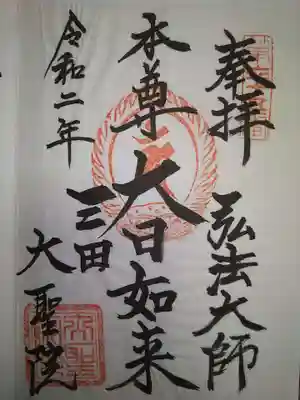 奉拝
弘法大師
本尊
大日如来
令和二年
三田
大聖院